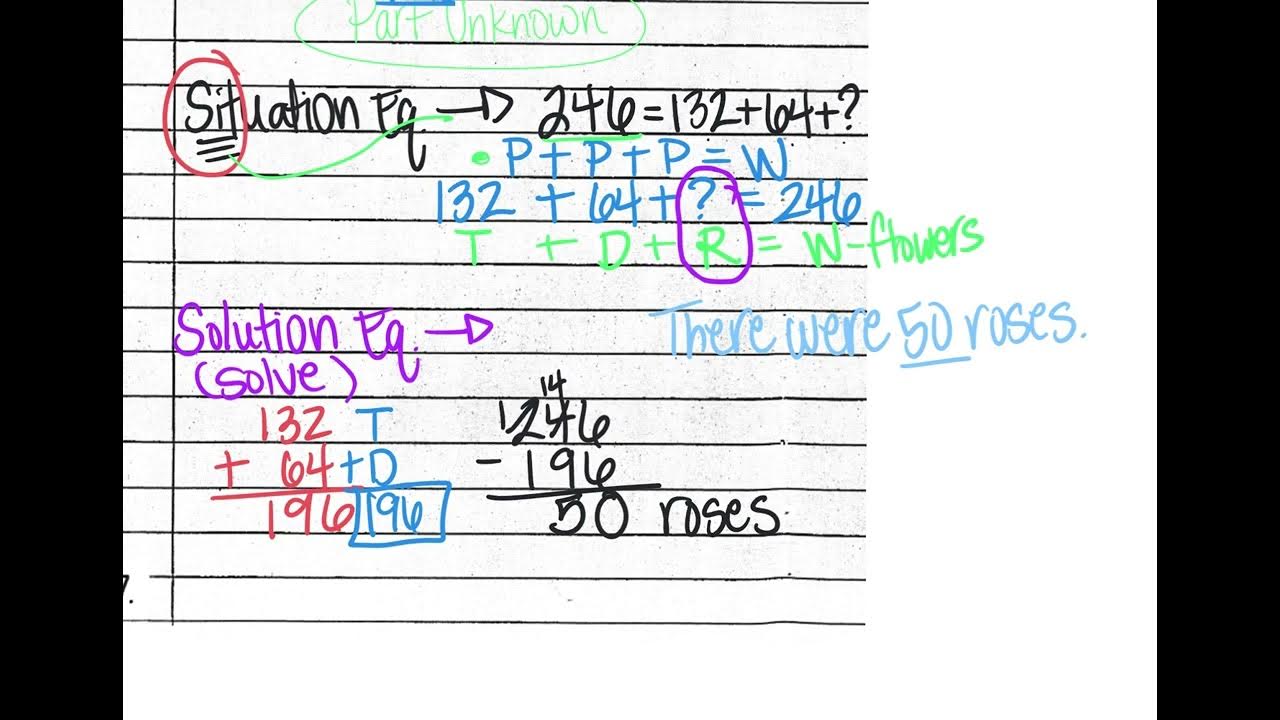 Part Unknown
Situation Eq → 246 = 132+64+?
• P + P + P = W
132 + 64 + ? = 246
T + D + R = W-flowers
Solution Eq. →
There were 50 roses.
(solve)
14
132 T 1246
+ 64 +D - 196
196 196 50 roses